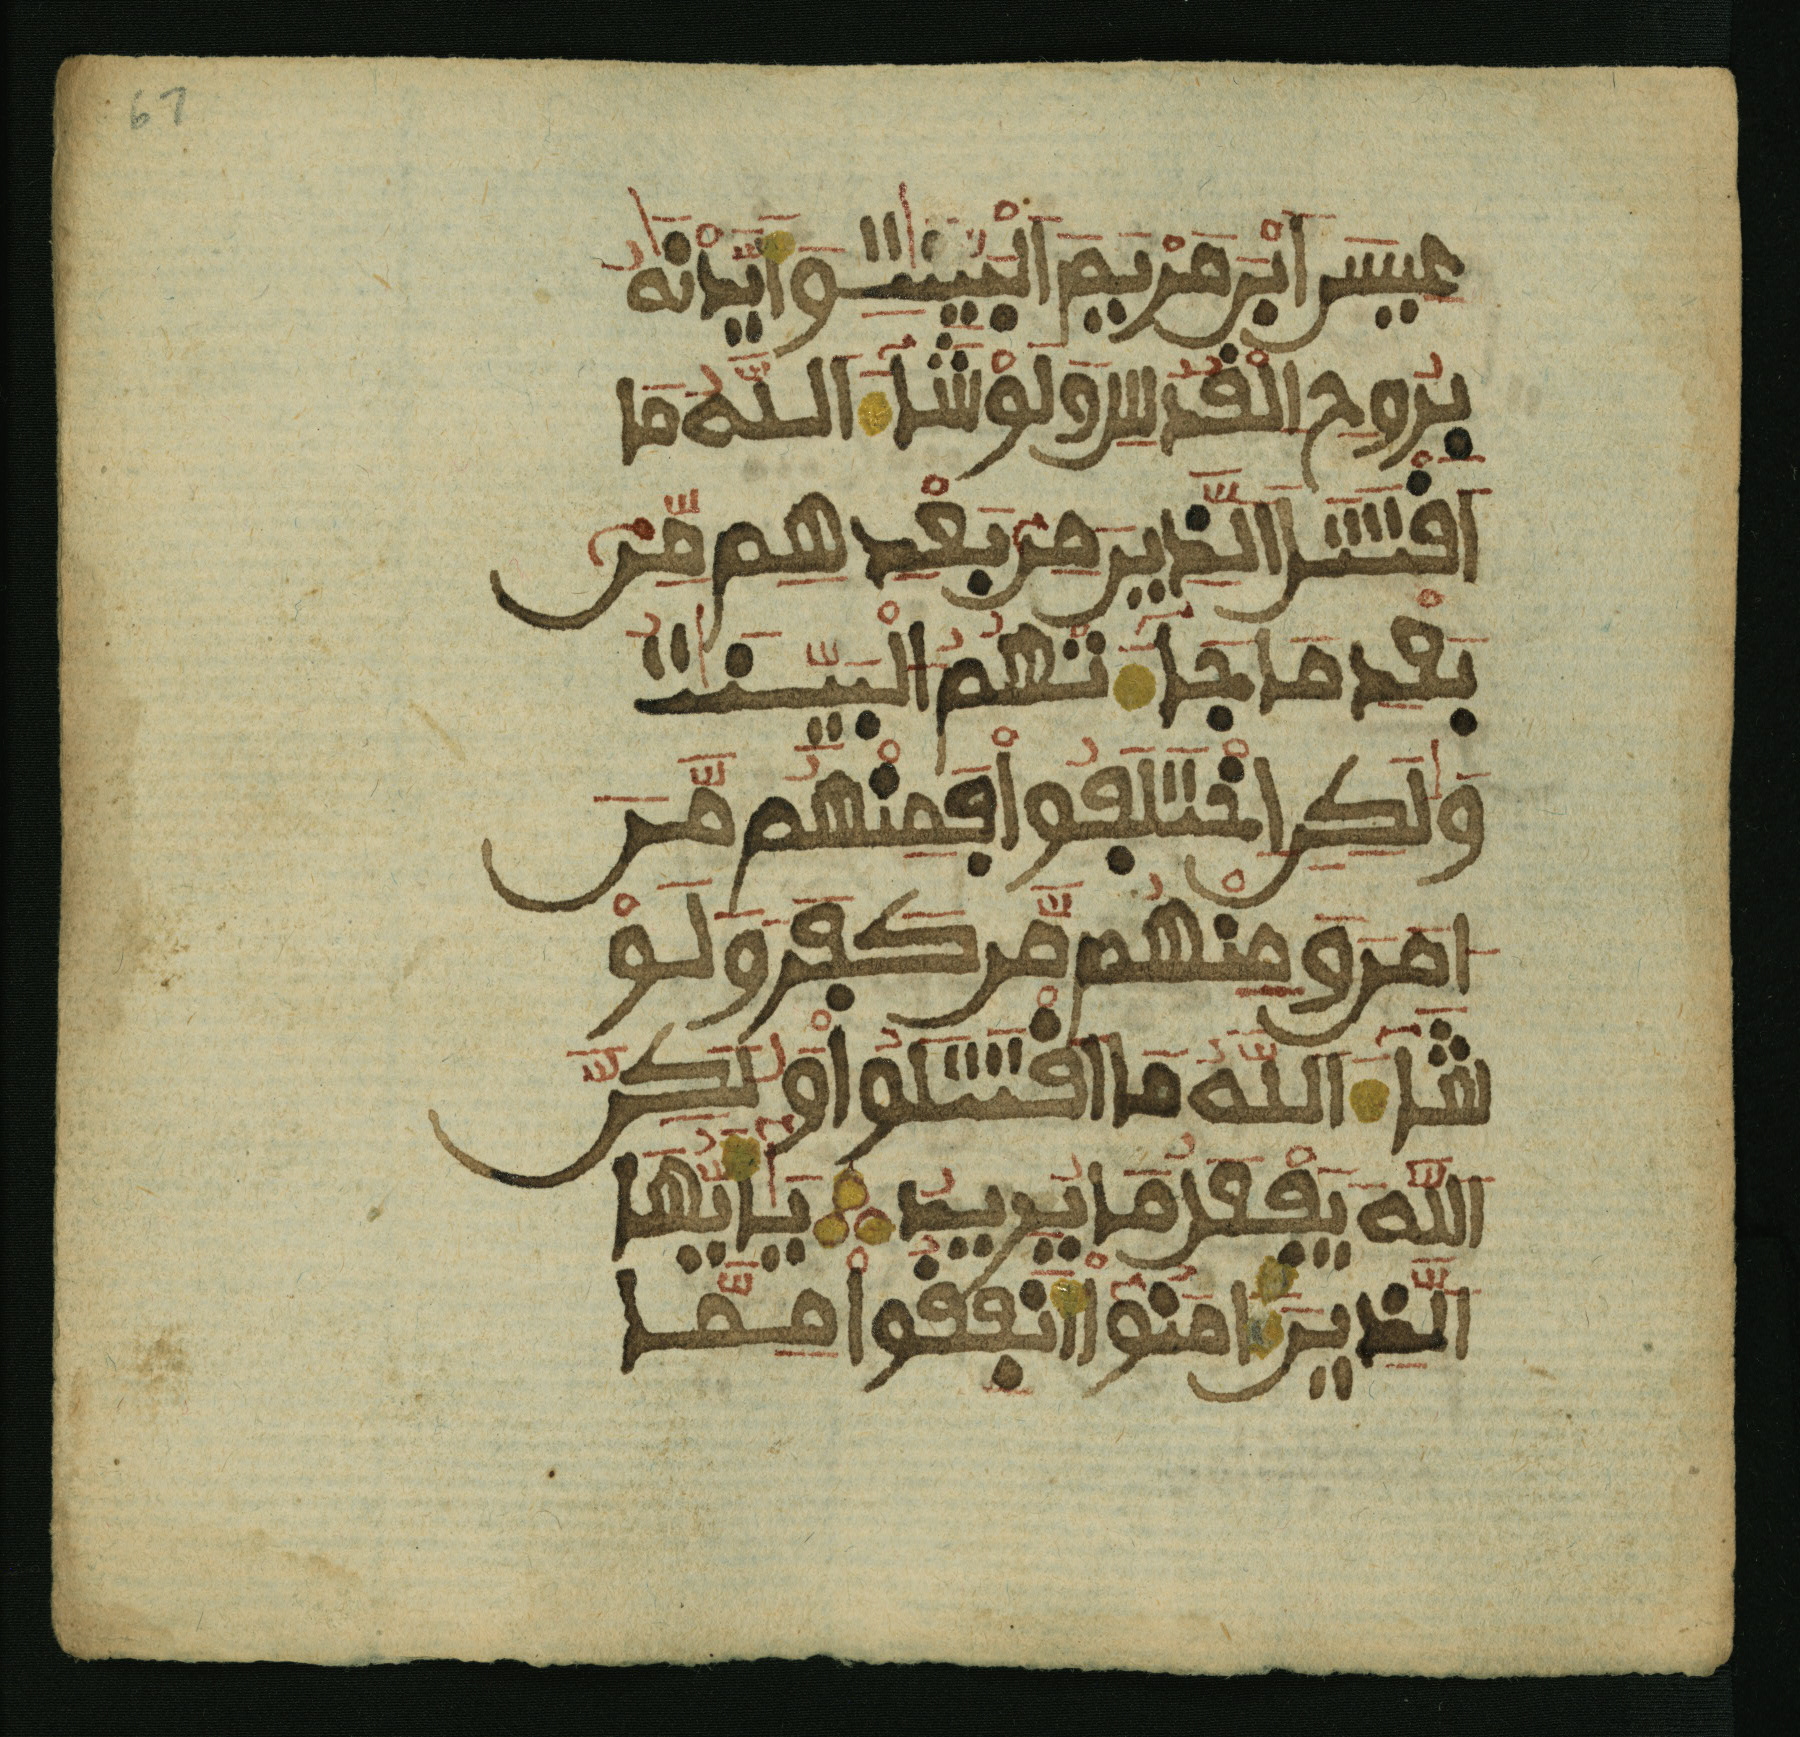 67
عِيسَى اَبْنَ مَرْيَمَ اَلْبَيِّنَٰتِ وَأَيَّدْنَٰهُ
بِرُوحِ اِلْڧُدُسِ وَلَوْ شَآءَ اَللَّهُ مَا
اَڧْتَتَلَ اَلَّذِينَ مِنۢ بَعْدِهِم مِّنۢ
بَعْدِ مَا جَآءَتْهُمُ اَلْبَيِّنَٰتُ
وَلَٰكِنِ اِخْتَلَڢُواْ ڢَمِنْهُم مَّنَ
اٰمَنَ وَمِنْهُم مَّن كَڢَرَ وَلَوْ
شَآءَ اَللَّهُ مَا اَڧْتَتَلُواْ وَلَٰكِنَّ
اَللَّهَ يَڢْعَلُ مَا يُرِيدُ يَٰٓأَيُّهَا
اَلَّذِينَ ءَامَنُوٓاْ أَنڢِڧُواْ مِمَّا